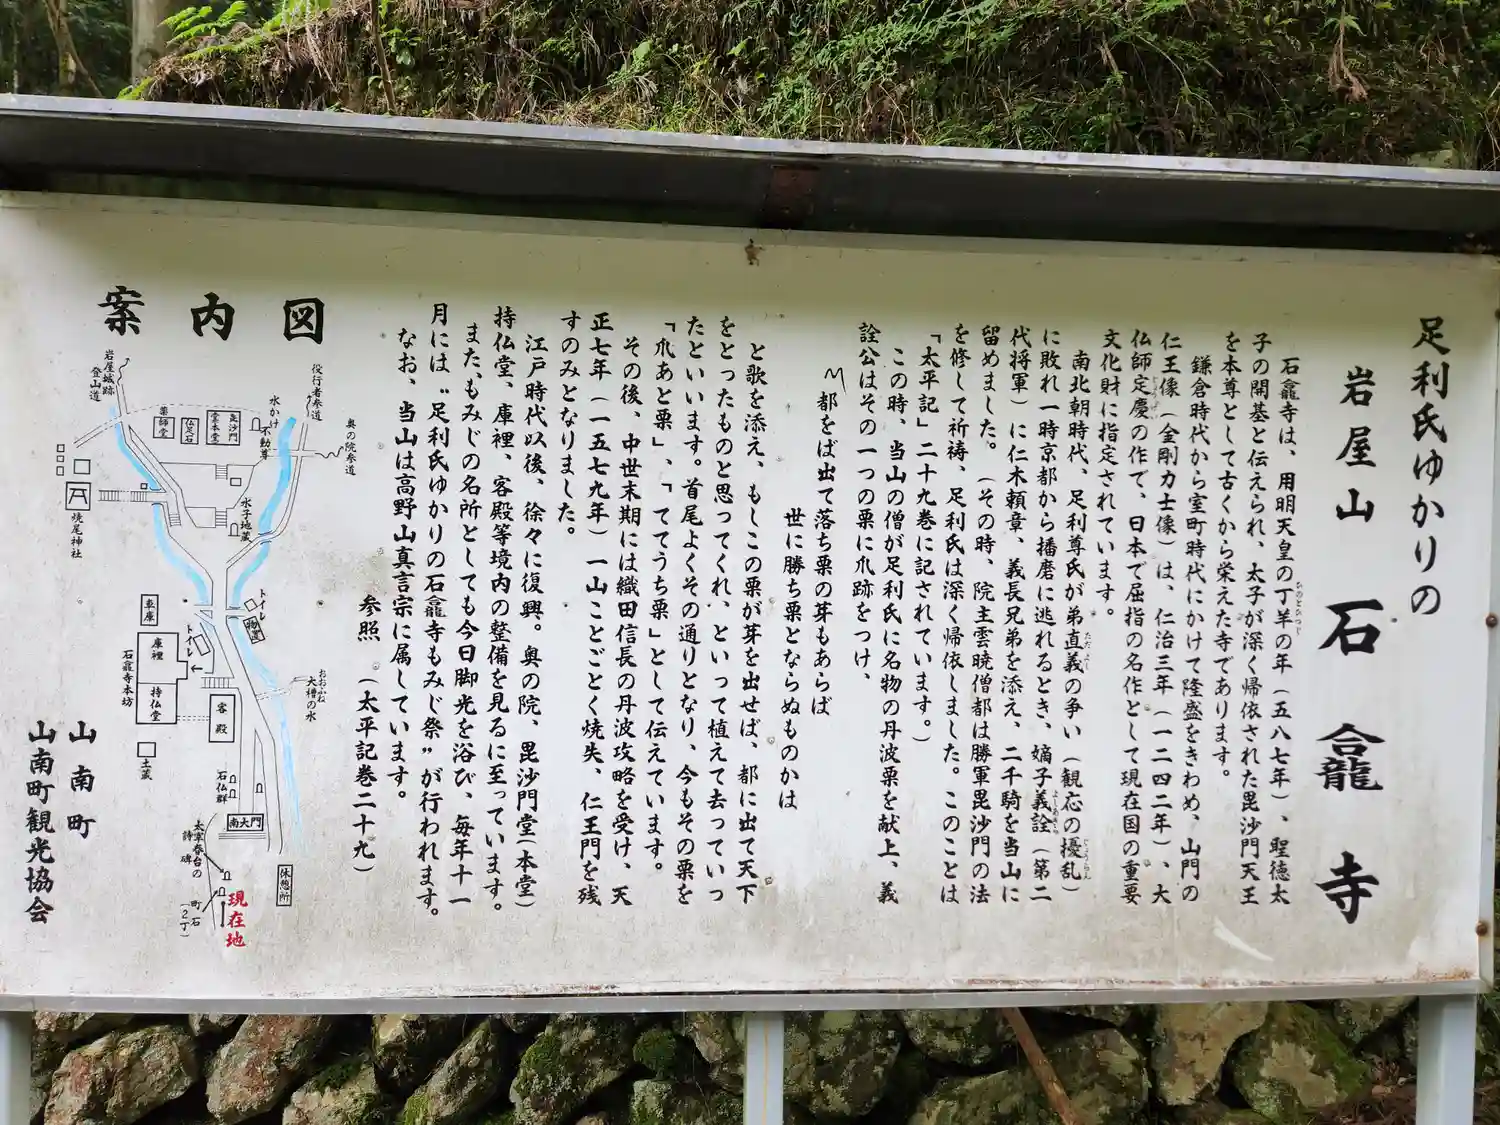 足利氏ゆかりの
岩屋山 石龕寺
石龕寺は、用明天皇の丁羊の年（五八七年）、聖徳太
子の開基と伝えられ、太子が深く帰依された毘沙門天王
を本尊として古くから栄えた寺であります。
鎌倉時代から室町時代にかけて隆盛をきわめ、山門の
仁王像（金剛力士像）は、仁治三年（一二四二年）、大
仏師定慶の作で、日本で屈指の名作として現在国の重要
文化財に指定されています。
南北朝時代、足利尊氏が弟直義の争い（観応の擾乱）
に敗れ一時京都から播磨に逃れるとき、嫡子義詮（第二
代将軍）に仁木頼章、義長兄弟を添え、二千騎を当山に
留めました。（その時、院主雲暁僧都は勝軍毘沙門の法
を修して祈祷、足利氏は深く帰依しました。このことは
「太平記」二十九巻に記されています。）
この時、当山の僧が足利氏に名物の丹波栗を献上、義
詮公はその一つの栗に爪跡をつけ、
〽都をば出て落ち栗の芽もあらば
世に勝ち栗とならぬものかは
と歌を添え、もしこの栗が芽を出せば、都に出て天下
をとったものと思ってくれ、といって植えて去っていっ
たといいます。首尾よくその通りとなり、今もその栗を
「爪あと栗」、「ててうち栗」として伝えています。
その後、中世末期には織田信長の丹波攻略を受け、天
正七年（一五七九年）一山ことごとく焼失、仁王門を残
すのみとなりました。
江戸時代以後、徐々に復興。奥の院、毘沙門堂（本堂）
持仏堂、庫裡、客殿等境内の整備を見るに至っています。
また、もみじの名所としても今日脚光を浴び、毎年十一
月には〝足利氏ゆかりの石龕寺もみじ祭〟が行われます。
なお、当山は高野山真言宗に属しています。
参照（太平記巻二十九）
案内図
岩屋城跡
登山道
役行者参道
水かけ
不動尊
奥の院参道
薬師堂
仏足石
毘沙門
堂本堂
水子地蔵
焼尾神社
トイレ
物置
車庫
庫裡
持仏堂
トイレ
石龕寺本坊
客殿
おおふね
大槽の水
土蔵
石仏群
南大門
太宰春台の
詩碑
休憩所
町石
（2丁）
現在地
山南町
山南町観光協会